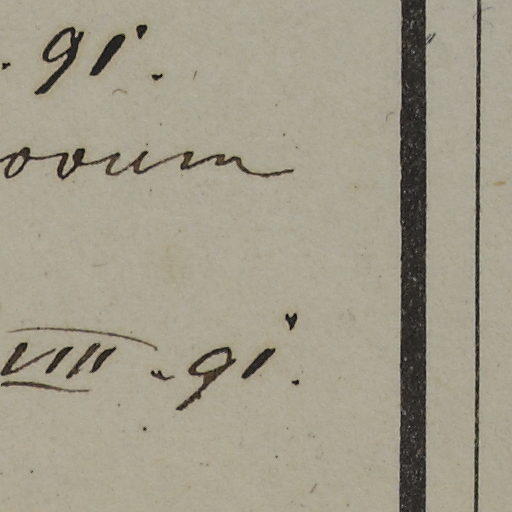 . 91.
ovum
VIII. 91.